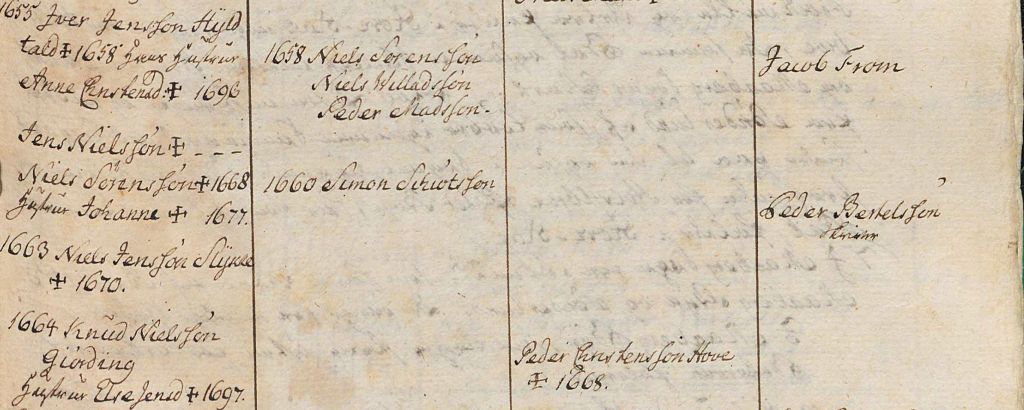 1655 Jver Jenssön Hÿld
tald ✝ 1658 Hans Hustrue
Anne Christensd. ✝ 1696
Jens Nielssön ✝ - - -
Niels Sörenssön ✝ 1668
Hustrue Johanne ✝ 1677.
1663 Niels Jenssön Slÿkke
✝ 1670.
1664 Knud Nielssön
Giörding
Hustrue Else Jensd ✝ 1697.
1658 Niels Sörenssön
Niels Willadssön
Peder Madssön.
1660 Simon Schiötssön
Peder Christenssön Hove
✝ 1668.
Jacob From
Peder Bertelssön